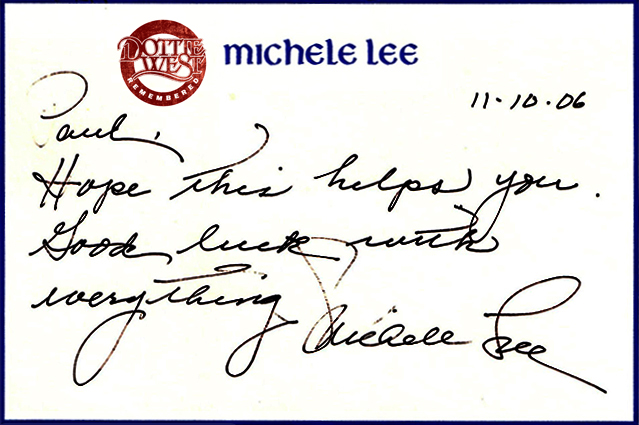 DOTTIE
WEST
REMEMBERED
michele lee
11·10·06
Paul,
Hope this helps you.
Good luck with
everything
Michele Lee